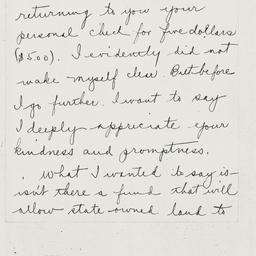 returning to you your
personal check for five dollars
($5.00). I evidently did not
make myself clear. But before
I go further. I want to say
I deeply appreciate your
kindness and promptness.
What I wanted to say is—
isn't there a fund that will
allow state-owned land to